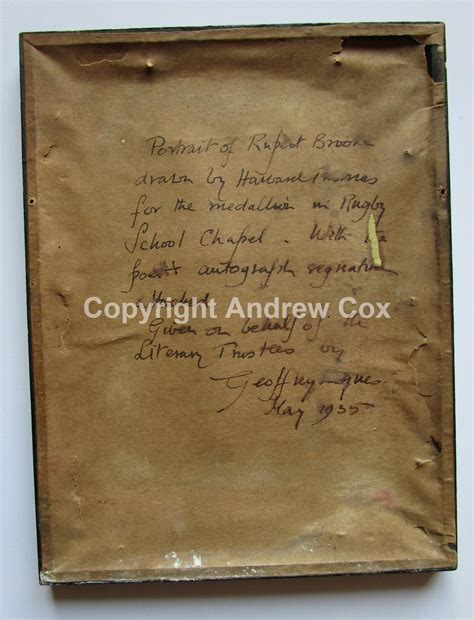 Portrait of Rupert Brooke
drawn by Havard Thomas
for the medallion in Rugby
School Chapel. With the
poet's autograph signature
attached
Copyright Andrew Cox
Given on behalf of the
Literary Trustees by
Geoffrey Keynes
May 1935